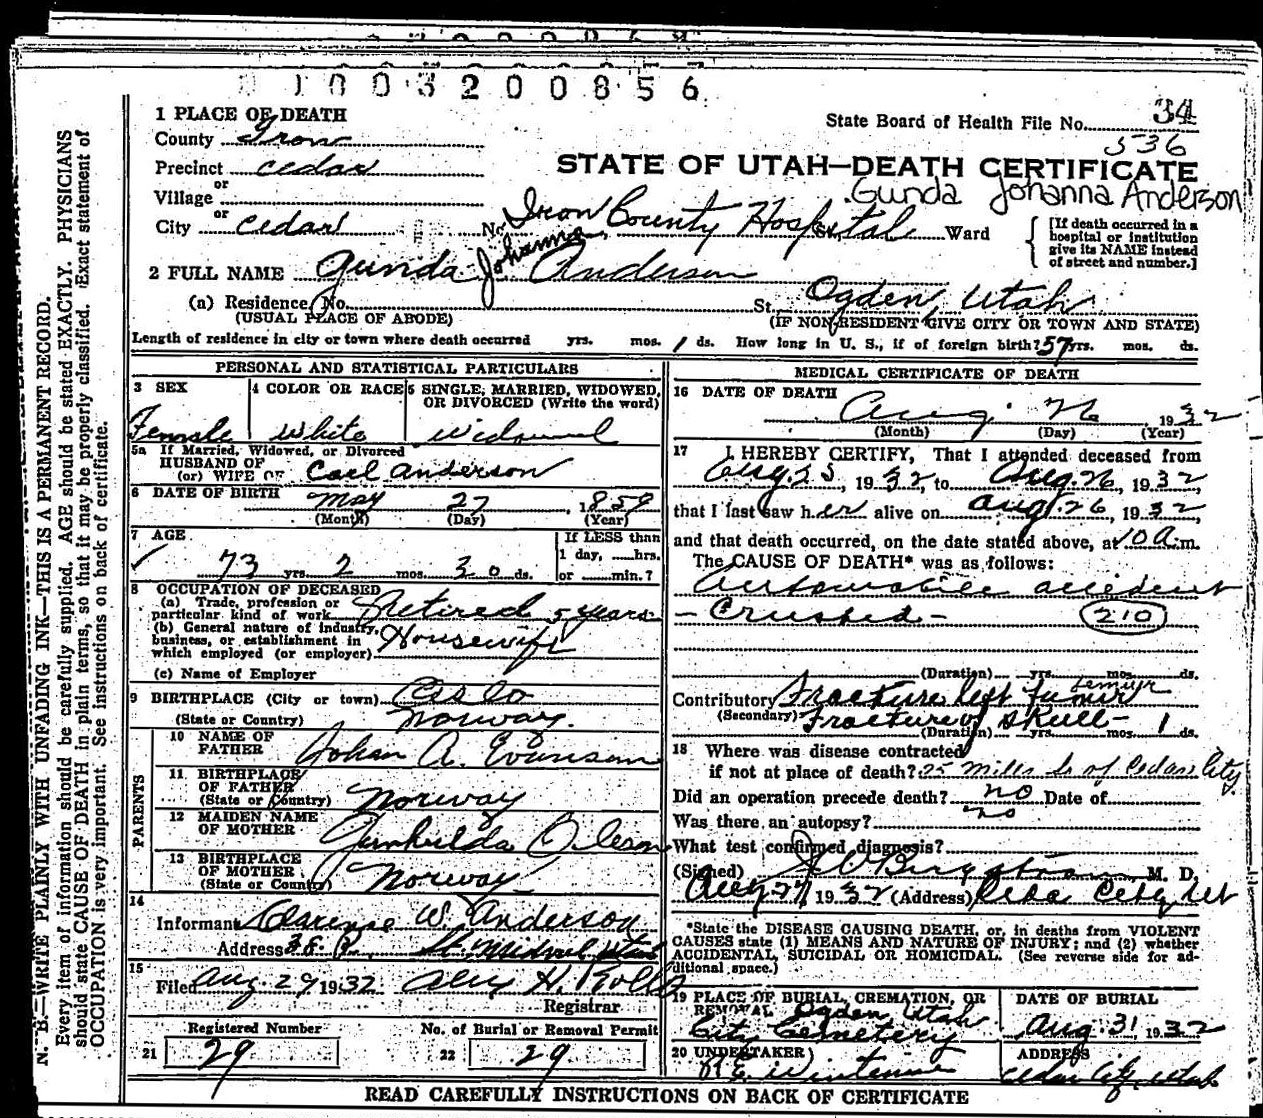 0 1 0 0 3 2 0 0 8 5 6
34
1 PLACE OF DEATH
State Board of Health File No.
County Iron
536
Precinct Cedar
STATE OF UTAH—DEATH CERTIFICATE
or
Village
Gunda Johanna Anderson
or
City Cedar No. Iron County Hospital St. Ward
[If death occurred in a hospital or institution give its NAME instead of street and number.]
2 FULL NAME Gunda Johanna Anderson
(a) Residence, No. St. Ogden, Utah
(USUAL PLACE OF ABODE) (IF NON-RESIDENT GIVE CITY OR TOWN AND STATE)
Length of residence in city or town where death occurred yrs. mos. 1 ds. How long in U. S., if of foreign birth? 57 yrs. mos. ds.
PERSONAL AND STATISTICAL PARTICULARS
3 SEX 4 COLOR OR RACE 5 SINGLE, MARRIED, WIDOWED, OR DIVORCED (Write the word)
Female White Widowed
5a If Married, Widowed, or Divorced
HUSBAND OF
(or) WIFE OF Carl Anderson
6 DATE OF BIRTH May 27, 1859
(Month) (Day) (Year)
7 AGE If LESS than
1 day, hrs.
73 yrs. 2 mos. 30 ds. or min.?
8 OCCUPATION OF DECEASED
(a) Trade, profession or
particular kind of work Retired 5 years
(b) General nature of industry,
business, or establishment in
which employed (or employer) Housewife
(c) Name of Employer
9 BIRTHPLACE (City or town) Oslo
(State or Country) Norway.
PARENTS
10 NAME OF
FATHER Johan A. Evanson
11 BIRTHPLACE
OF FATHER
(State or Country) Norway
12 MAIDEN NAME
OF MOTHER Gunhilda Oleson
13 BIRTHPLACE
OF MOTHER
(State or Country) Norway
14
Informant Clarence W. Anderson
Address
15
Filed Aug. 29 1932 Alex H. Rollo
Registrar
Registered Number No. of Burial or Removal Permit
21 29 22 29
MEDICAL CERTIFICATE OF DEATH
16 DATE OF DEATH
Aug. 26 1932
(Month) (Day) (Year)
17 I HEREBY CERTIFY, That I attended deceased from
Aug. 25, 1932, to Aug. 26, 1932,
that I last saw her alive on Aug. 26, 1932,
and that death occurred, on the date stated above, at 10 a. m.
The CAUSE OF DEATH* was as follows:
Automobile accident
- Crushed - 210
(Duration) yrs. mos. ds.
Contributory Fracture left femur
(Secondary) Fracture of skull -
(Duration) yrs. mos. 1 ds.
18 Where was disease contracted
if not at place of death? 25 miles So of Cedar City.
Did an operation precede death? no Date of
Was there an autopsy? no
What test confirmed diagnosis?
(Signed) M. D.
Aug 27 1932 (Address) Cedar City, Ut
*State the DISEASE CAUSING DEATH, or, in deaths from VIOLENT
CAUSES state (1) MEANS AND NATURE OF INJURY; and (2) whether
ACCIDENTAL, SUICIDAL OR HOMICIDAL. (See reverse side for ad-
ditional space.)
19 PLACE OF BURIAL, CREMATION, OR DATE OF BURIAL
REMOVAL Ogden, Utah
City Cemetery Aug. 31, 1932
20 UNDERTAKER ADDRESS
Cedar City, Utah
READ CAREFULLY INSTRUCTIONS ON BACK OF CERTIFICATE
N. B.—WRITE PLAINLY WITH UNFADING INK—THIS IS A PERMANENT RECORD.
Every item of information should be carefully supplied. AGE should be stated EXACTLY. PHYSICIANS
should state CAUSE OF DEATH in plain terms, so that it may be properly classified. Exact statement of
OCCUPATION is very important. See instructions on back of certificate.